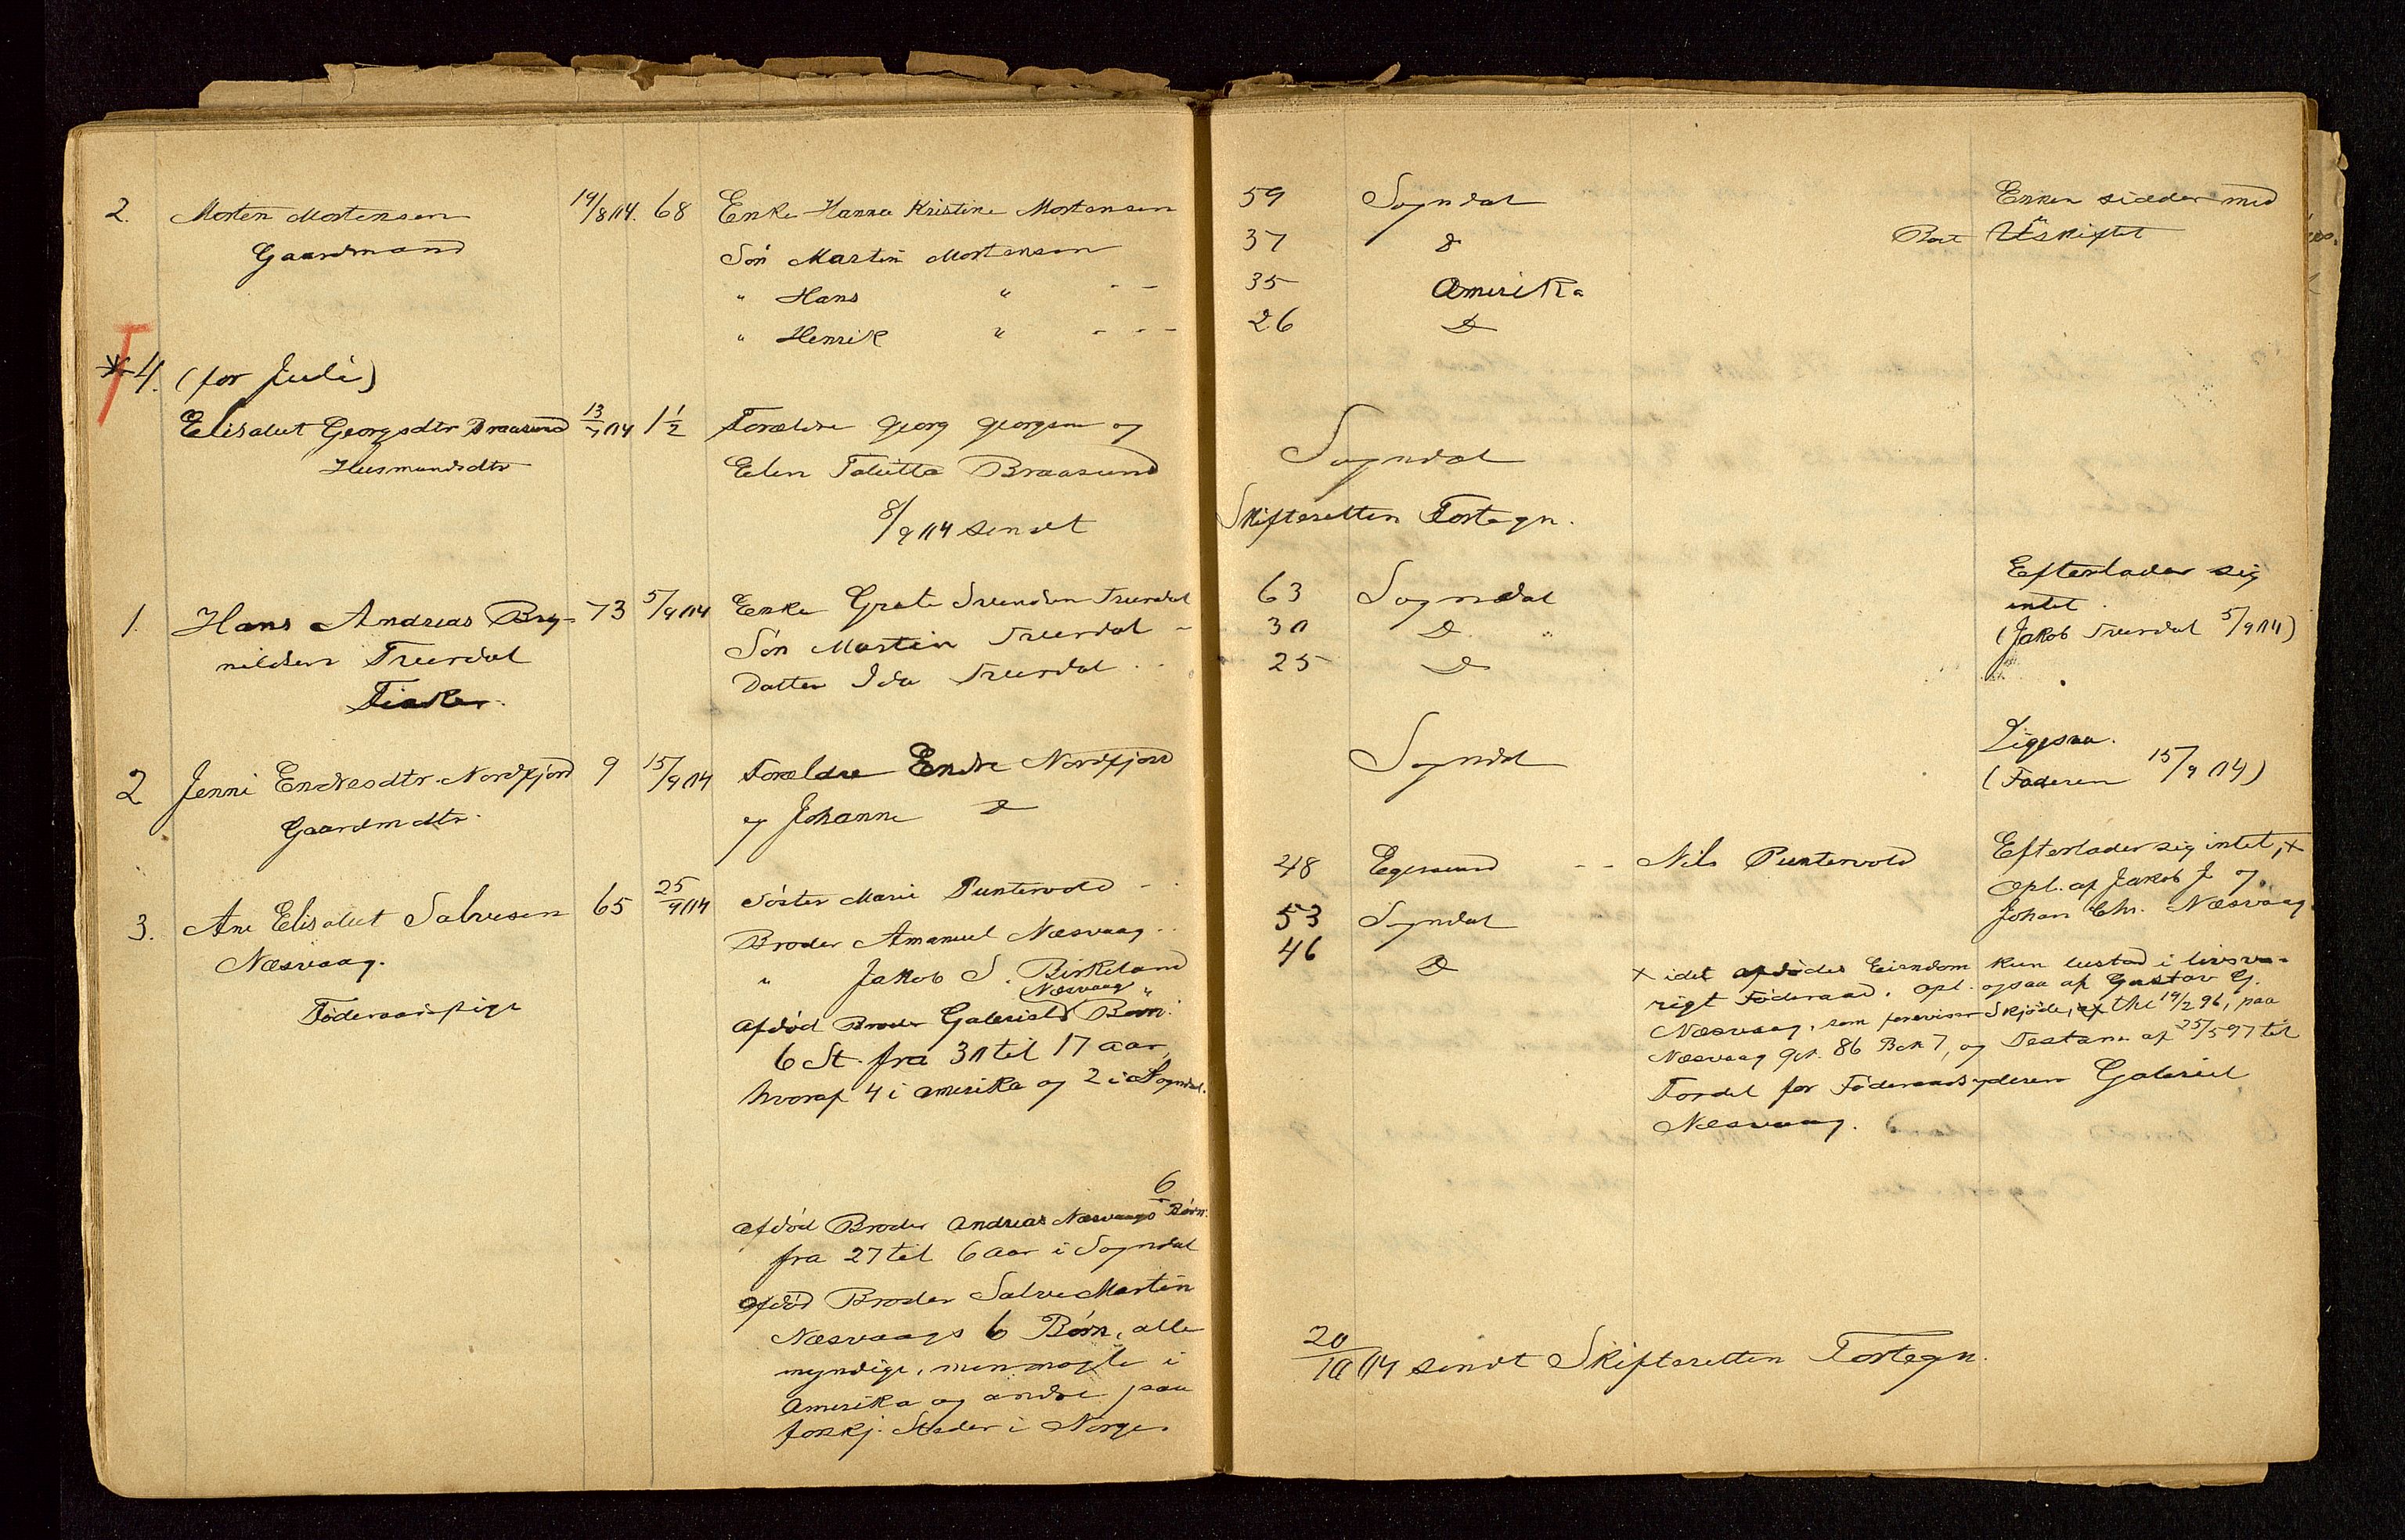 2. Morten Mortensen 14/8 04. 68 Enke Hanna Kristine Mortensen
Gaardmand
Søn Martin Mortensen
" Hans " - -
" Henrik " - - -
*4. (for Juli)
Elisabet Georgsdtr Braasund 13/7 04 1 1/2 Forældre Georg Georgsen og
Husmandsdtr Elen Tabitta Braasund
8/9 04 sendt
1. Hans Andreas Bry- 73 5/9 04 Enke Grete Svendsen
nildsen Søn Martin
Fisker Datter Ida
2 Jenni Endresdtr. Nordfjord 9 15/9 04 Forældre Endre Nordfjord
Gaardmdtr. og Johanne D
3. Ane Elisabet Salvesen 65 25/9 04 Søster Marie Puntervold - -
Næsvaag. Broder Amanuel Næsvaag - -
" Jakob S. Birkeland
Føderaadspige (Næsvaag "
Afdød Broder Gabriels Børn:
6 St. fra 30 til 17 aar,
hvoraf 4 i Amerika og 2 i Sogndal.
6
Afdød Broder Andreas Næsvaags Børn:
fra 27 til 6 aar i Sogndal
Afdød Broder Salve Martin
Næsvaags 6 Børn, alle
myndige, men nogle i
Amerika og andre paa
forskj. Steder i Norge.
59 Sogndal Enken sidder med
37 D Boet Uskiftet
35 Amerika
26 D
Sogndal
Skifteretten Fortegn.
63 Sogndal Efterlader sig
30 D " intet.
25 D (Jakob 5/9 04)
Sogndal Ligesaa.
(Faderen 15/9 04)
48 Egersund - - Nils Puntervold Efterlader sig intet, x
53 Sogndal Opl. af Jakob J. og
46 D Johan Chr. Næsvaag.
x idet afdødes Eiendom kun bestod i livsva-
rigt Føderaad. Opl. ogsaa af Gustav G.
Næsvaag, som foreviser Skjøde, thl 19/2 96, paa
Næsvaag gn. 86 Bn 7, og Testam. af 25/5 97 til
Fordel for Føderaadsyderen Gabriel
Næsvaag.
20/10 04 sendt Skifteretten Fortegn.